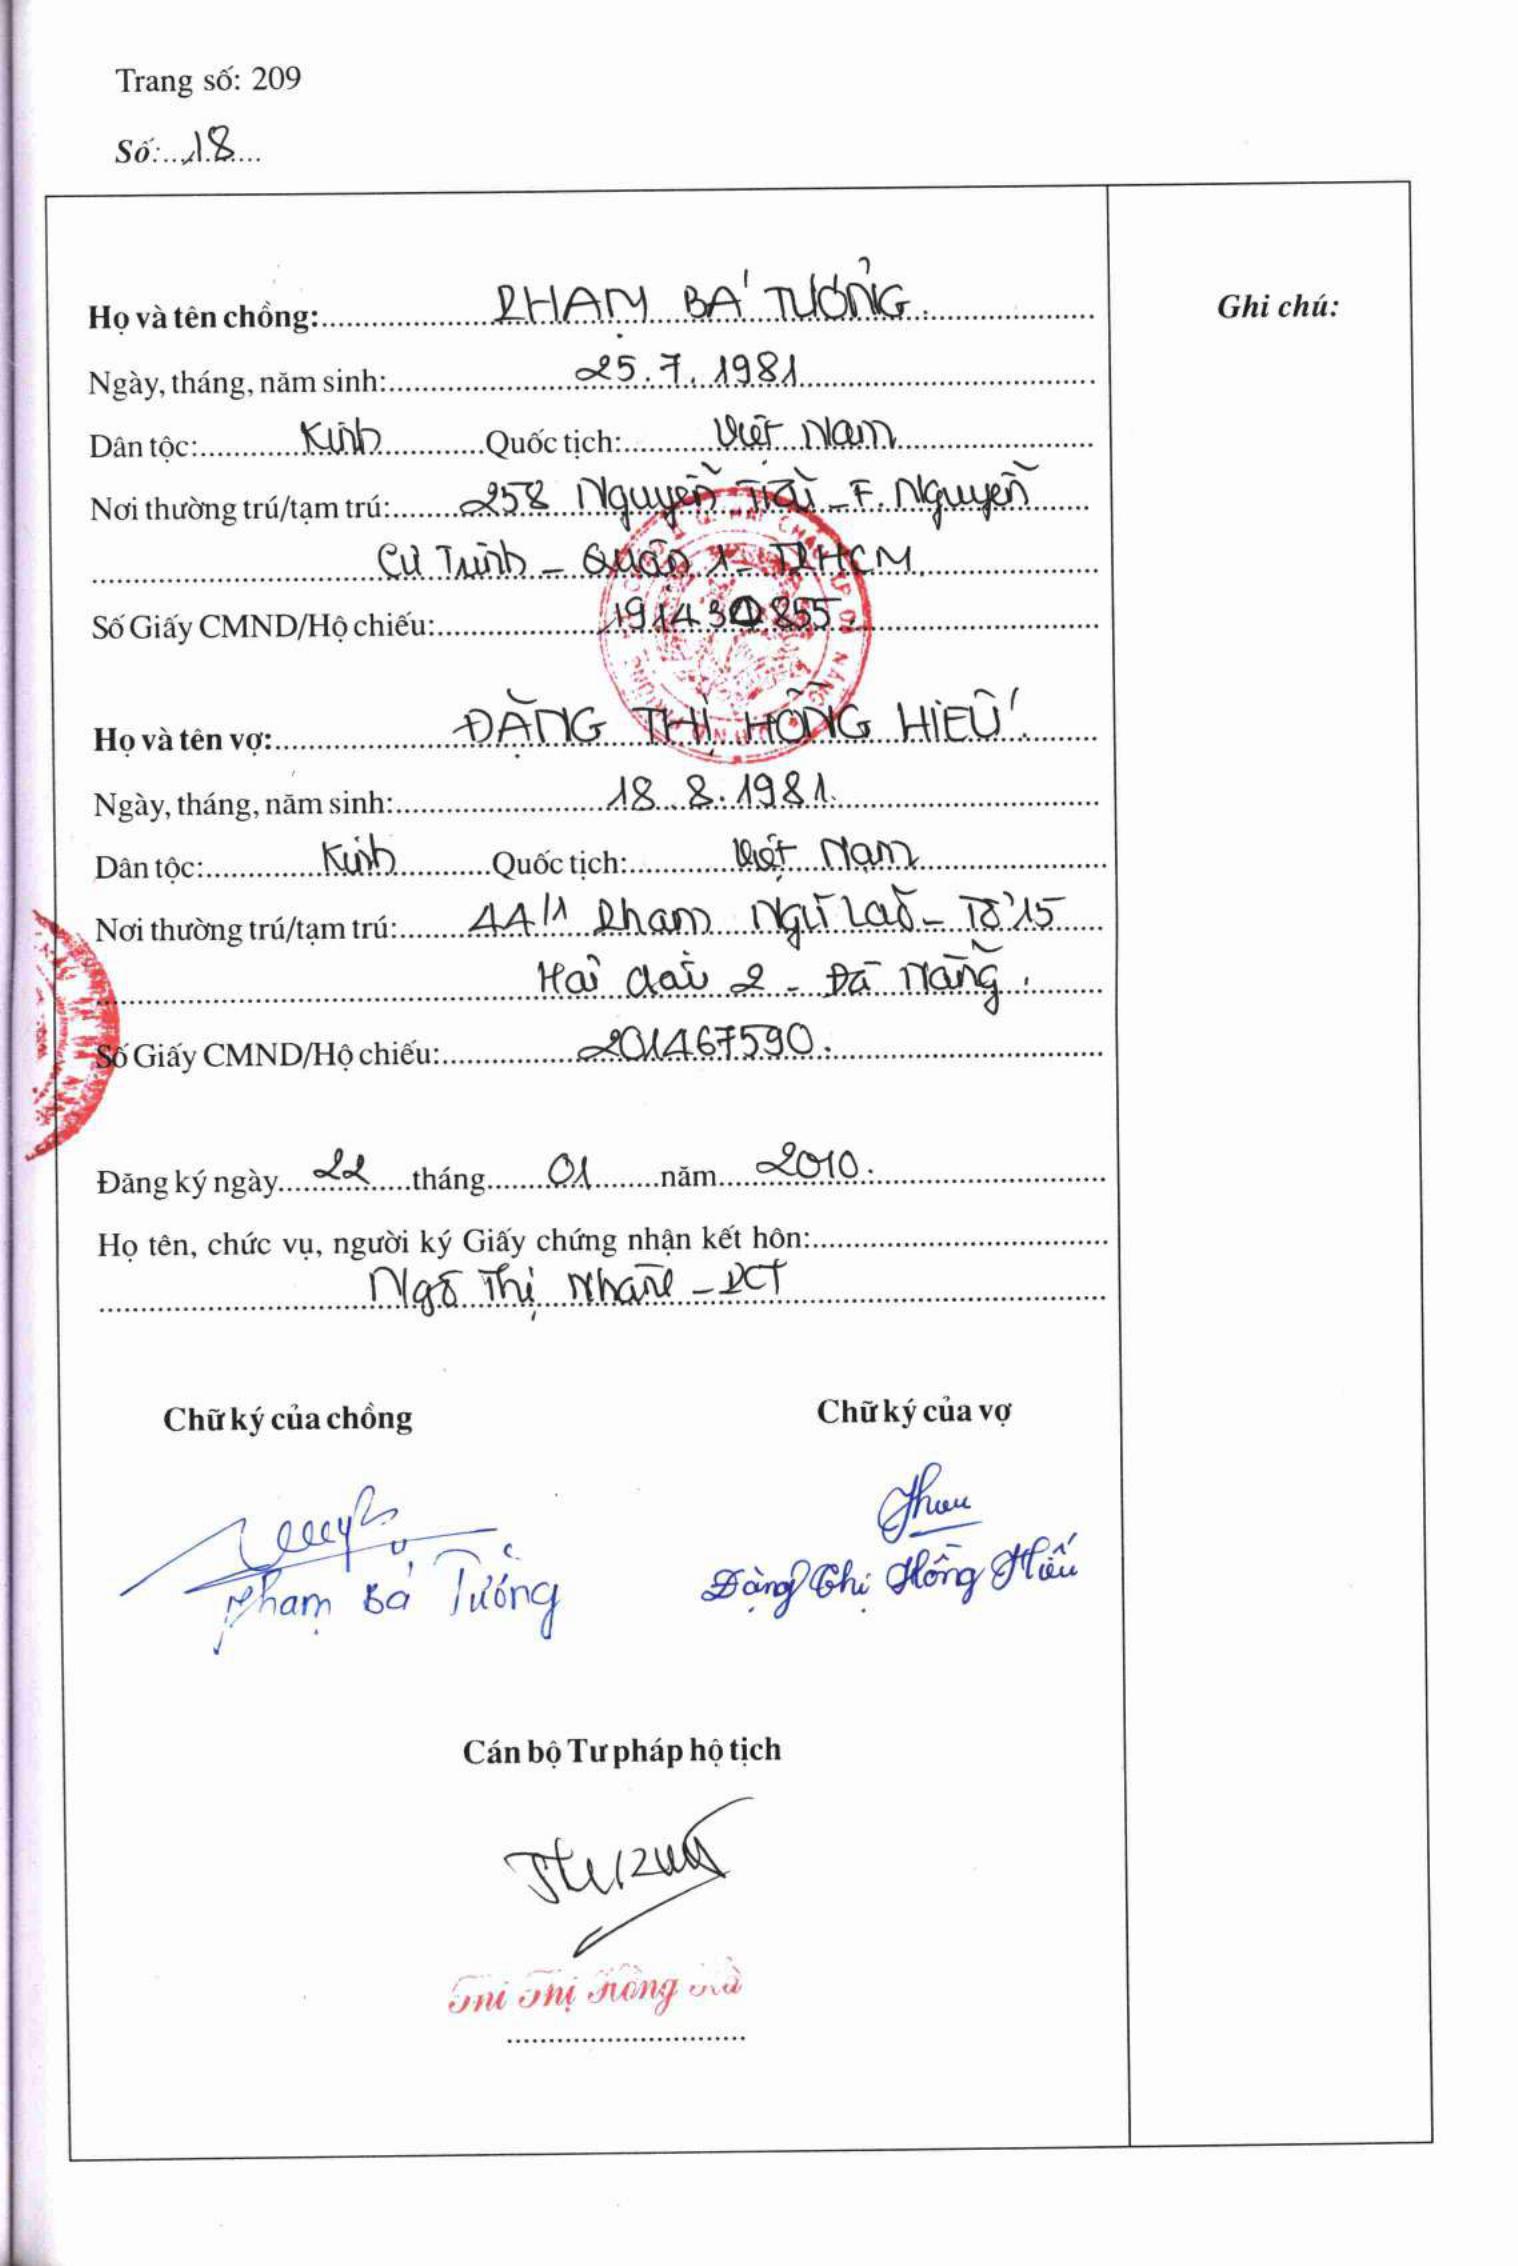 Trang số: 209
Số: 18
Họ và tên chồng: PHẠM BÁ TƯỞNG.
Ghi chú:
Ngày, tháng, năm sinh: 25.7.1981
Dân tộc: Kinh Quốc tịch: Việt Nam
Nơi thường trú/tạm trú: 258 Nguyễn Trãi - F. Nguyễn
Cư Trinh - Quận 1 - TPHCM
Số Giấy CMND/Hộ chiếu:
Họ và tên vợ: ĐẶNG THỊ HỒNG HIẾU.
Ngày, tháng, năm sinh: 18.8.1981.
Dân tộc: Kinh Quốc tịch: Việt Nam
Nơi thường trú/tạm trú: 44/1 Phạm Ngũ Lão - Tổ 15
Hải Châu 2 - Đà Nẵng.
Số Giấy CMND/Hộ chiếu: 201467590.
Đăng ký ngày 22 tháng 01 năm 2010.
Họ tên, chức vụ, người ký Giấy chứng nhận kết hôn:
Ngô Thị - PCT
Chữ ký của chồng Chữ ký của vợ
Phạm Bá Tưởng Đặng Thị Hồng Hiếu
Cán bộ Tư pháp hộ tịch
Thị Hồng